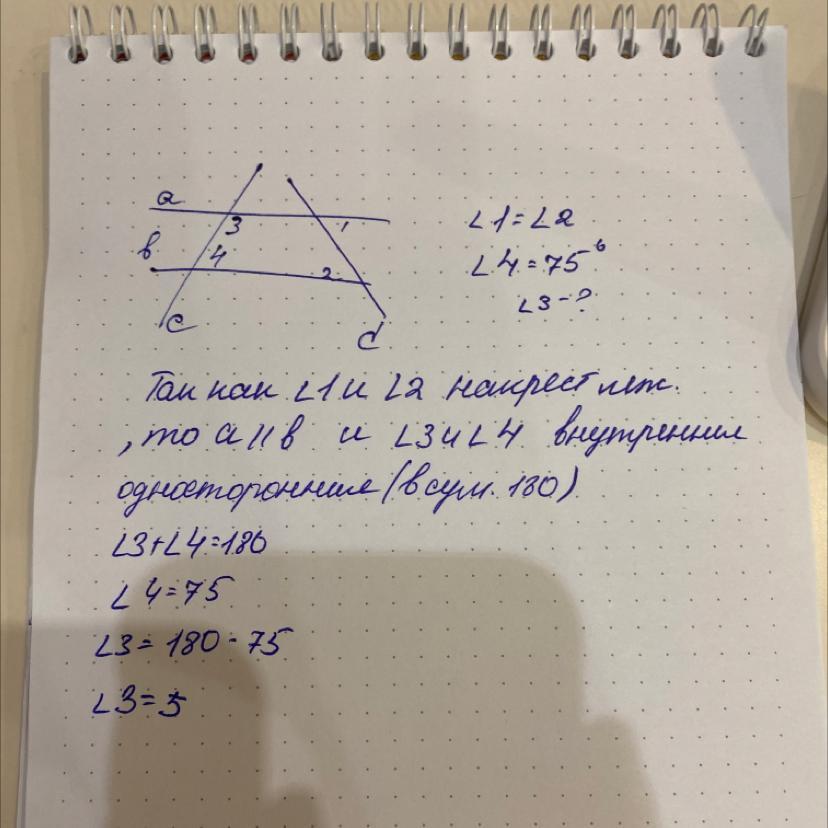 a
3
1
в
4
2
c
d
∠1 = ∠2
∠4 = 75°
∠3 - ?
Так как ∠1 и ∠2 накрест леж.
, то a || в и ∠3 и ∠4 внутренние
односторонние (в сум. 180)
∠3 + ∠4 = 180
∠4 = 75
∠3 = 180 - 75
∠3 = 5